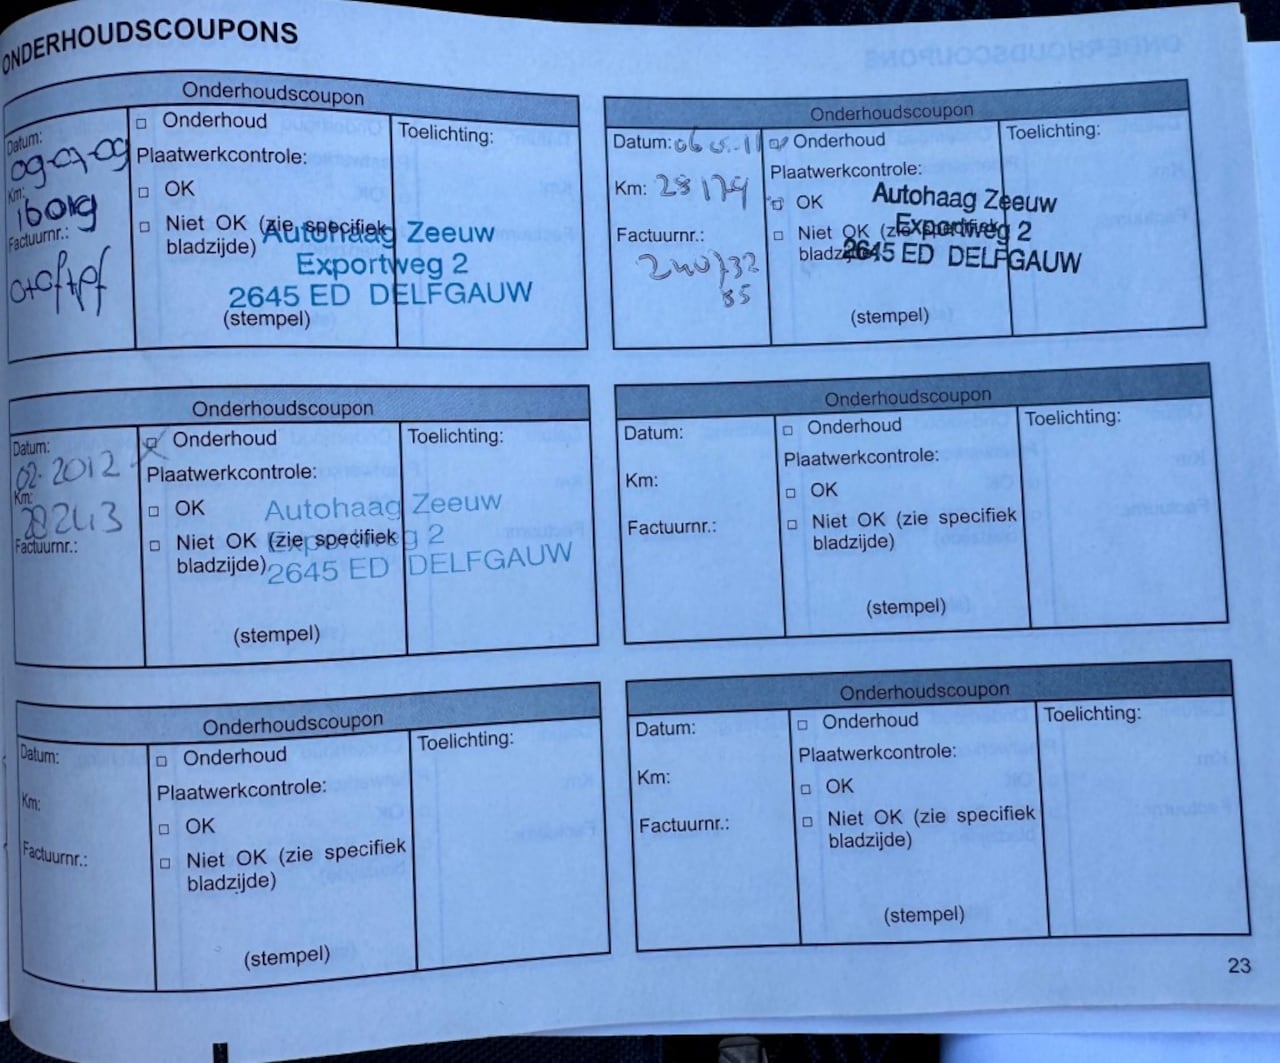 ONDERHOUDSCOUPONS
Onderhoudscoupon
Datum:
09-07-09
Km:
Factuurnr.:
□ Onderhoud
Plaatwerkcontrole:
□ OK
□ Niet OK (zie specifiek
bladzijde)
(stempel)
Toelichting:
Autohaag Zeeuw
Exportweg 2
2645 ED DELFGAUW
Onderhoudscoupon
Datum:
Km: 28179
Factuurnr.:
□ Onderhoud
Plaatwerkcontrole:
□ OK
□ Niet OK (zie specifiek
bladzijde)
(stempel)
Toelichting:
Autohaag Zeeuw
Exportweg 2
2645 ED DELFGAUW
Onderhoudscoupon
Datum:
02-2012
Km:
28243
Factuurnr.:
□ Onderhoud
Plaatwerkcontrole:
□ OK
□ Niet OK (zie specifiek
bladzijde)
(stempel)
Toelichting:
Autohaag Zeeuw
Exportweg 2
2645 ED DELFGAUW
Onderhoudscoupon
Datum:
Km:
Factuurnr.:
□ Onderhoud
Plaatwerkcontrole:
□ OK
□ Niet OK (zie specifiek
bladzijde)
(stempel)
Toelichting:
Onderhoudscoupon
Datum:
Km:
Factuurnr.:
□ Onderhoud
Plaatwerkcontrole:
□ OK
□ Niet OK (zie specifiek
bladzijde)
(stempel)
Toelichting:
Onderhoudscoupon
Datum:
Km:
Factuurnr.:
□ Onderhoud
Plaatwerkcontrole:
□ OK
□ Niet OK (zie specifiek
bladzijde)
(stempel)
Toelichting:
23